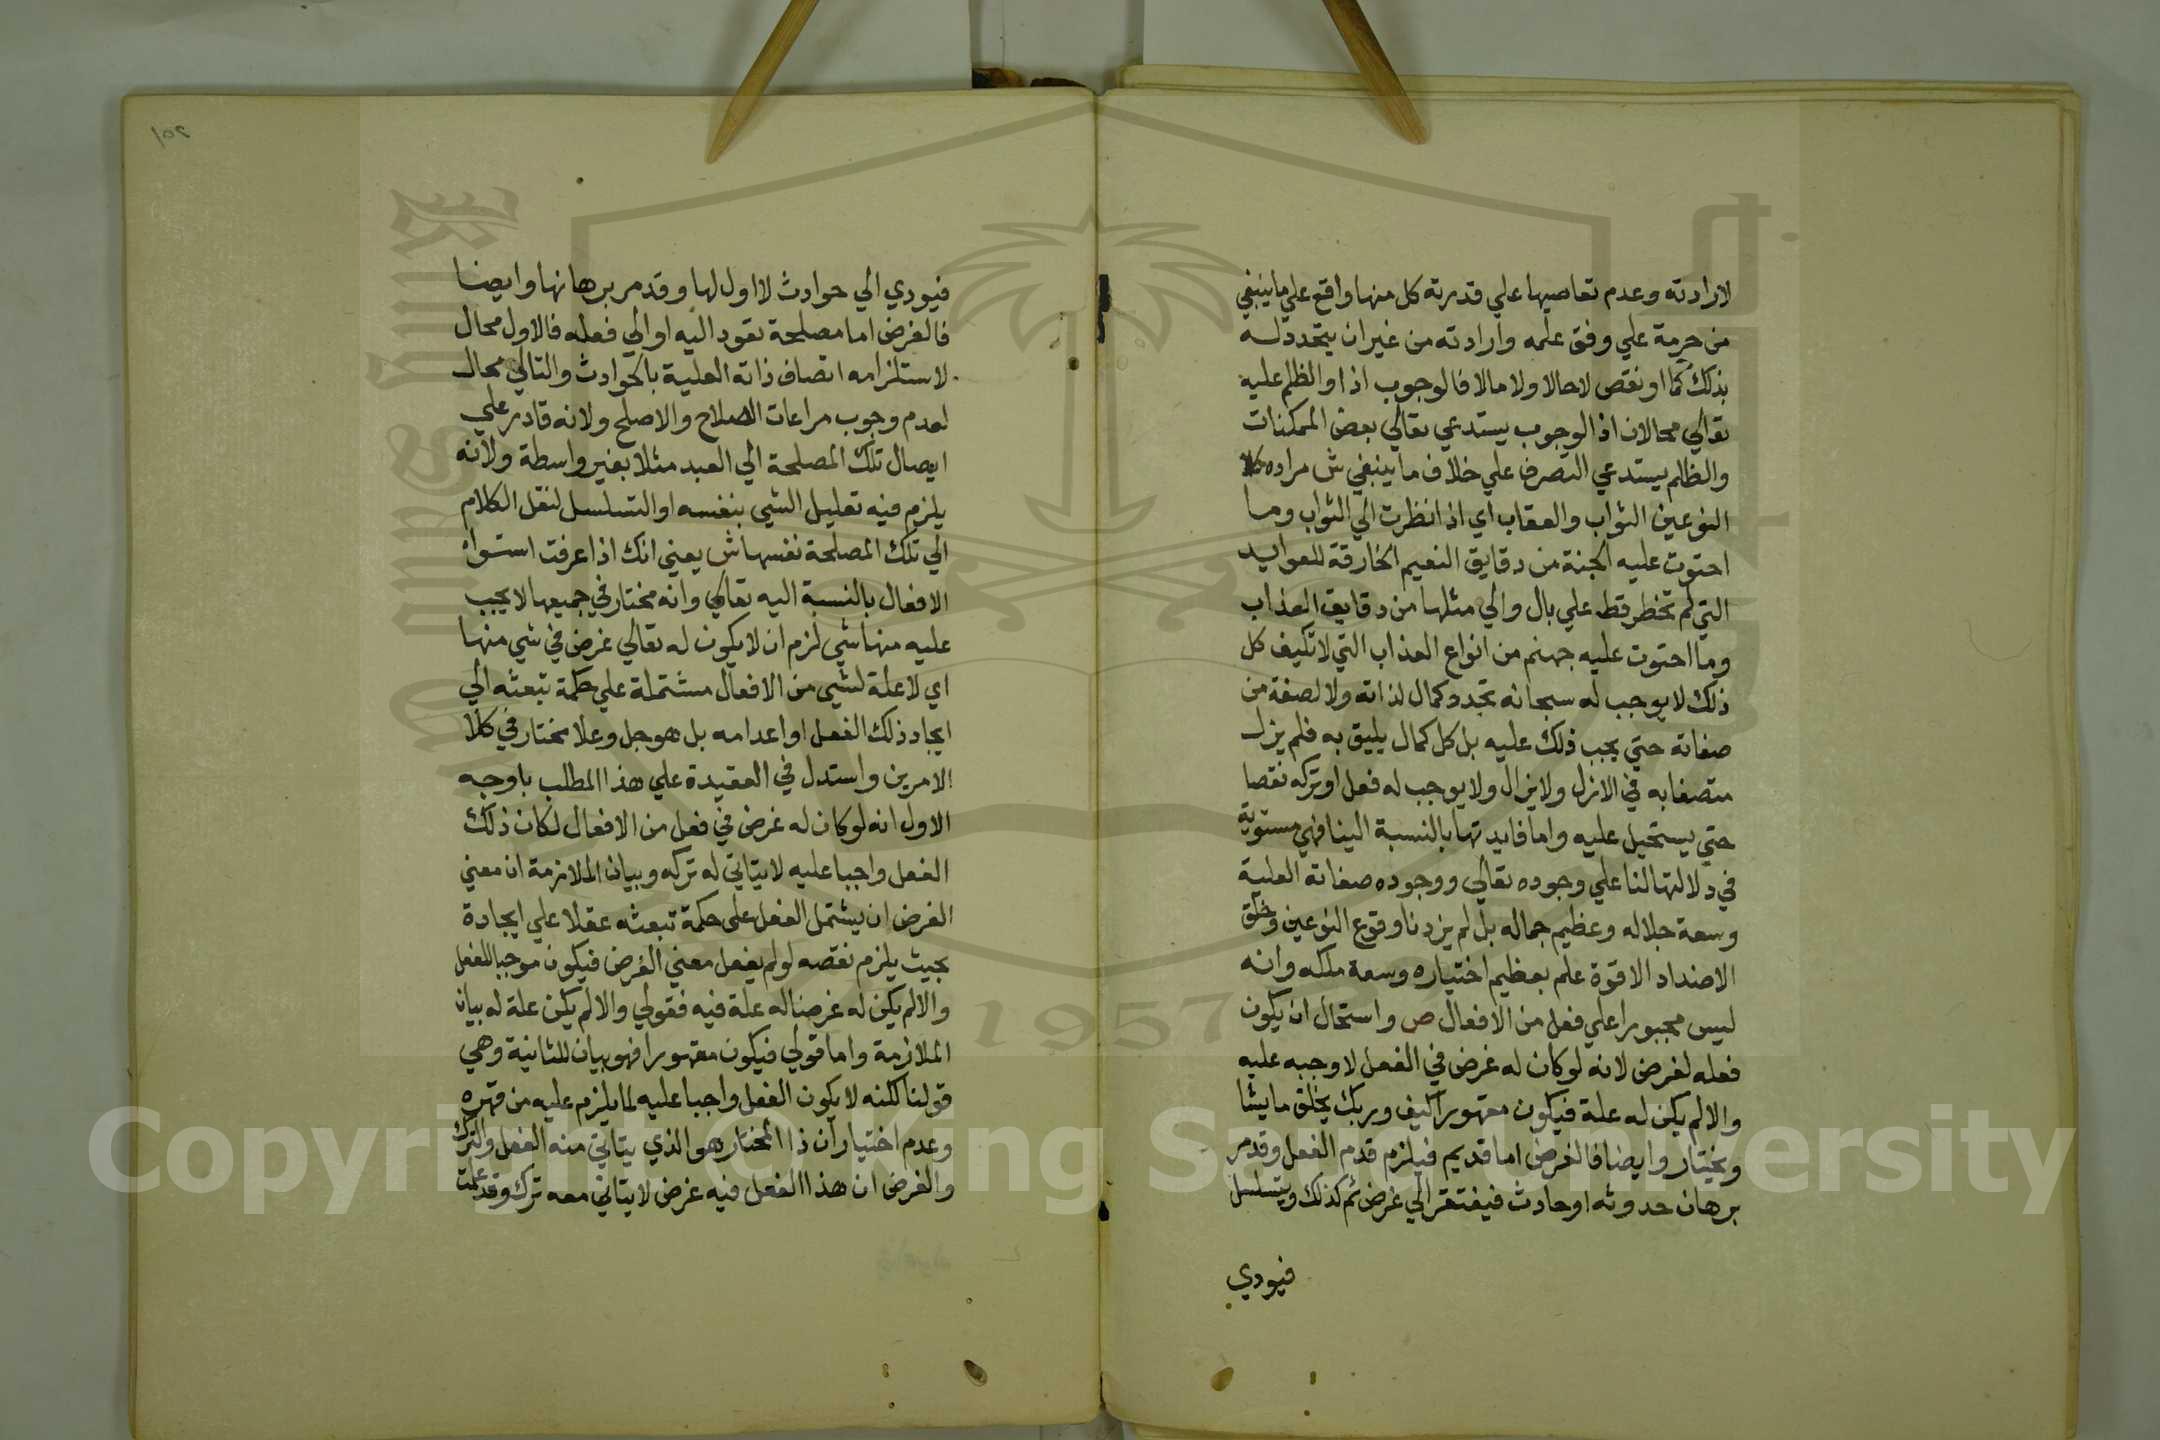 لارادته وعدم تعاصيها علي قدرته كل منها واقع علي ما ينبغي
من حرمة علي وفق علمه وارادته من غير ان يتجدد له
بذلك كما او نقص لا حالا ولا مالا فالوجوب اذا والظلم عليه
تعالي محالان اذ الوجوب يستدعي تعالي بعض الممكنات
والظلم يستدعي التصرف علي خلاف ما ينبغي ش مراده بكلا
النوعين الثواب والعقاب اي اذا نظرت الي الثواب وما
احتوت عليه الجنة من دقايق النعيم الخارقة للعوايد
التي لم تخطر قط علي بال والي مثلها من دقايق العذاب
وما احتوت عليه جهنم من انواع العذاب التي لا تكيف كل
ذلك لا يوجب له سبحانه تجدد كمال لذاته ولا لصفة من
صفاته حتي يجب ذلك عليه بل كل كمال يليق به فلم يزل
متصفا به في الازل ولا يزال ولا يوجب له فعل او تركه نقصا
حتي يستحيل عليه واما فايدتها بالنسبة الينا فهي مستوية
في دلالتها لنا علي وجوده تعالي ووجوده صفاته العلية
وسعة جلاله وعظيم جماله بل لم يزدنا وقوع النوعين وخلق
الاضداد الا قوة علم بعظيم اختياره وسعة ملكه وانه
ليس مجبورا علي فعل من الافعال ص واستحال ان يكون
فعله لغرض لانه لو كان له غرض في الفعل لا وجبه عليه
والا لم يكن له علة فيكون مقهورا كيف وربك يخلق ما يشا
ويختار وايضا فالغرض اما قديم فيلزم قدم الفعل وقد مر
برهان حدوثه او حادث فيفتقر الي غرض ثم كذلك ويتسلسل
فيودي
٢٥١
فيودي الي حوادث لا اول لها وقد مر برهانها وايضا
فالغرض اما مصلحة تعود اليه او الي فعله فالاول محال
لاستلزامه اتصاف ذاته العلية بالحوادث والتالي محال
لعدم وجوب مراعات الصلاح والاصلح ولانه قادر علي
ايصال تلك المصلحة الي العبد مثلا بغير واسطة ولانه
يلزم فيه تعليل الشي بنفسه او التسلسل لنقل الكلام
الي تلك المصلحة نفسها ش يعني انك اذا عرفت استواء
الافعال بالنسبة اليه تعالي وانه مختار في جميعها لا يجب
عليه منها شي لزم ان لا يكون له تعالي غرض في شي منها
اي لا علة لشي من الافعال مشتملة علي حكمة تبعثه الي
ايجاد ذلك الفعل او اعدامه بل هو جل وعلا مختار في كلا
الامرين واستدل في العقيدة علي هذا المطلب باوجه
الاول انه لو كان له غرض في فعل من الافعال لكان ذلك
الفعل واجبا عليه لا يتاتي له تركه وبيان الملازمة ان معني
الغرض ان يشتمل الفعل على حكمة تبعثه عقلا علي ايجادة
بحيث يلزم نقصه لو لم يفعل معني الغرض فيكون موجبا للفعل
والا لم يكن له غرضا له علة فيه فقولي والا لم يكن علة له بيان
الملازمة واما قولي فيكون مقهورا فهو بيان للثانية وهي
قولنا لكنه لا يكون الفعل واجبا عليه لما يلزم عليه من قهره
وعدم اختيار ان ذا المختار هو الذي يتاتي منه الفعل والترك
والغرض ان هذا الفعل فيه غرض لا يتاتي معه ترك وقد علمت